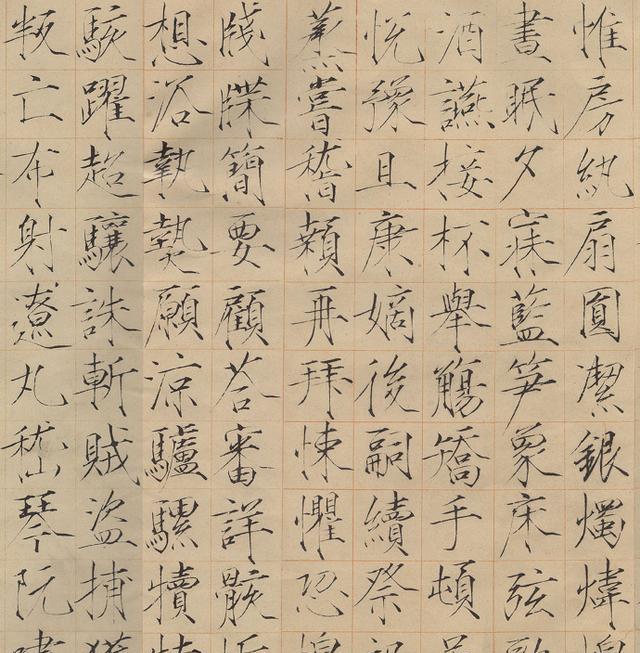 惟房紈扇圓潔銀燭煒
晝眠夕寐藍笋象床弦
酒讌接杯舉觴矯手頓
悅豫且康嫡後嗣續祭
蒸嘗稽顙再拜悚懼恐
牋牒簡要顧荅審詳骸
想浴執熱願涼驢騾犢
駭躍超驤誅斬賊盜捕
叛亡布射遼丸嵇琴阮